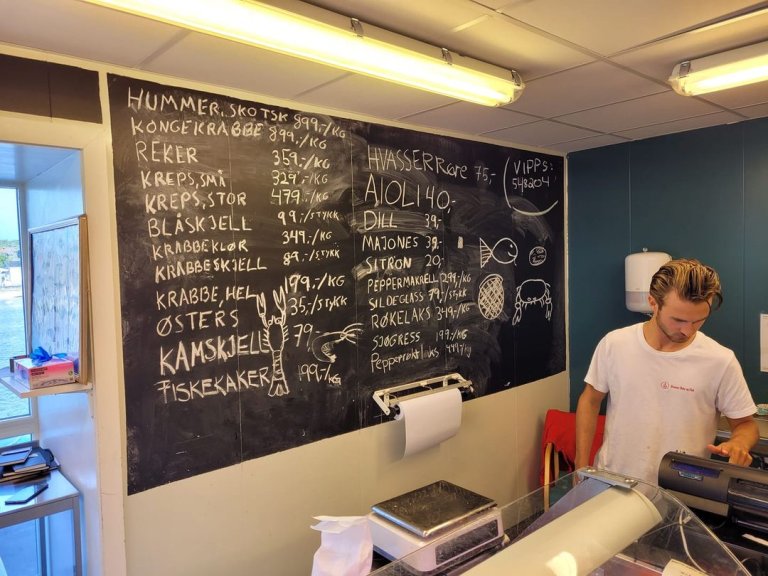 HUMMER, SKOTSK 899,-/KG
KONGEKRABBE 899,-/KG
REKER 359,-/KG
KREPS, SMÅ 329,-/KG
KREPS, STOR 479,-/KG
BLÅSKJELL 99,-/STYKK
KRABBEKLØR 349,-/KG
KRABBESKJELL 89,-/STYKK
KRABBE, HEL 199,-/KG
ØSTERS 35,-/STYKK
KAMSKJELL 79,-
FISKEKAKER 199,-/KG
HVASSERRØRE 75,-
AIOLI 40,-
DILL 39,-
MAJONES 39,-
SITRON 20,-
PEPPERMAKRELL 299,-/KG
SILDEGLASS 79,-/STYKK
RØKELAKS 349,-/KG
SJØGRESS 199,-/KG
Pepperrøkt laks 449,-/KG
VIPPS:
548204